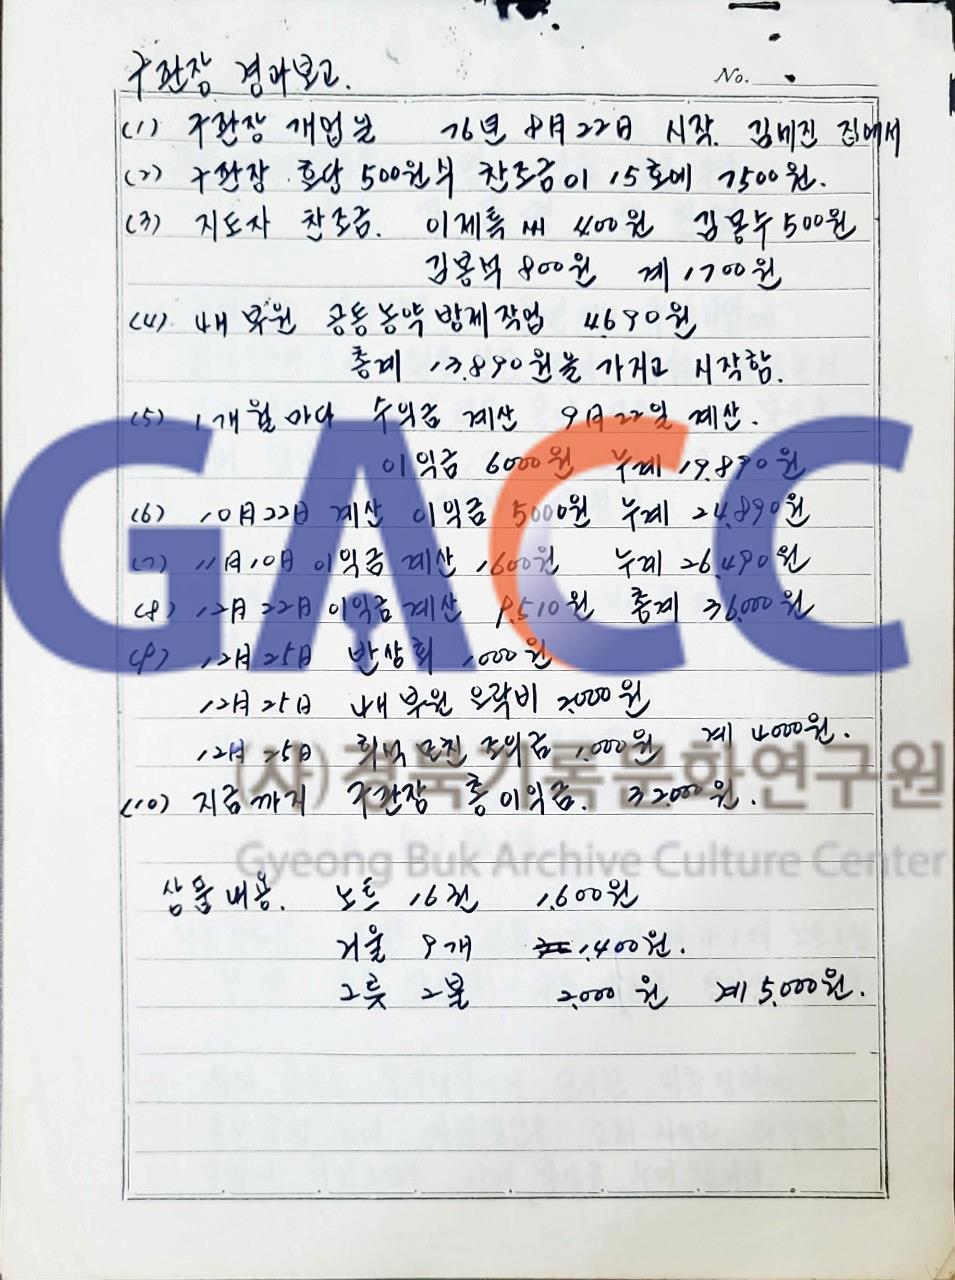 구판장 경과보고.
No.
(1) 구판장 개업일 76년 8月22日 시작. 김미진 집에서
(2) 구판장 호당 500원씩 찬조금이 15호에 7500원.
(3) 지도자 찬조금. 이제특씨 400원 김봉수 500원
김봉석 800원 계 1700원
(4) 새부원 공동농약 방제작업 4,690원
총계 13,890원을 가지고 시작함.
(5) 1개월마다 수익금 계산 9月22일 계산.
이익금 6000원 누계 19,890원
(6) 10月22日 계산 이익금 5000원 누계 24,890원
(7) 11月10日 이익금 계산 1,600원 누계 26,490원
(8) 12月22日 이익금 계산 9,510원 총계 36,000원
(9) 12月25日 반상회 1,000원
12月25日 새부원 오락비 2,000원
12月25日 모친 조의금 1,000원 계 4000원.
(10) 지금까지 구판장 총이익금. 32,000원.
GACC
(사)경북기록문화연구원
Gyeong Buk Archive Culture Center
상품내용. 노트 16권 1,600원
거울 9개 1,400원.
그릇 2불 2,000원 계 5,000원.